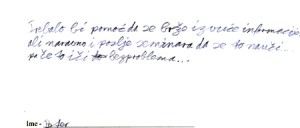 Trebalo bi pomoć da se brže izvuće informacije
ali naravno i poslje seminara da se to nauči...
pa će to ići bez problema...
Ime -